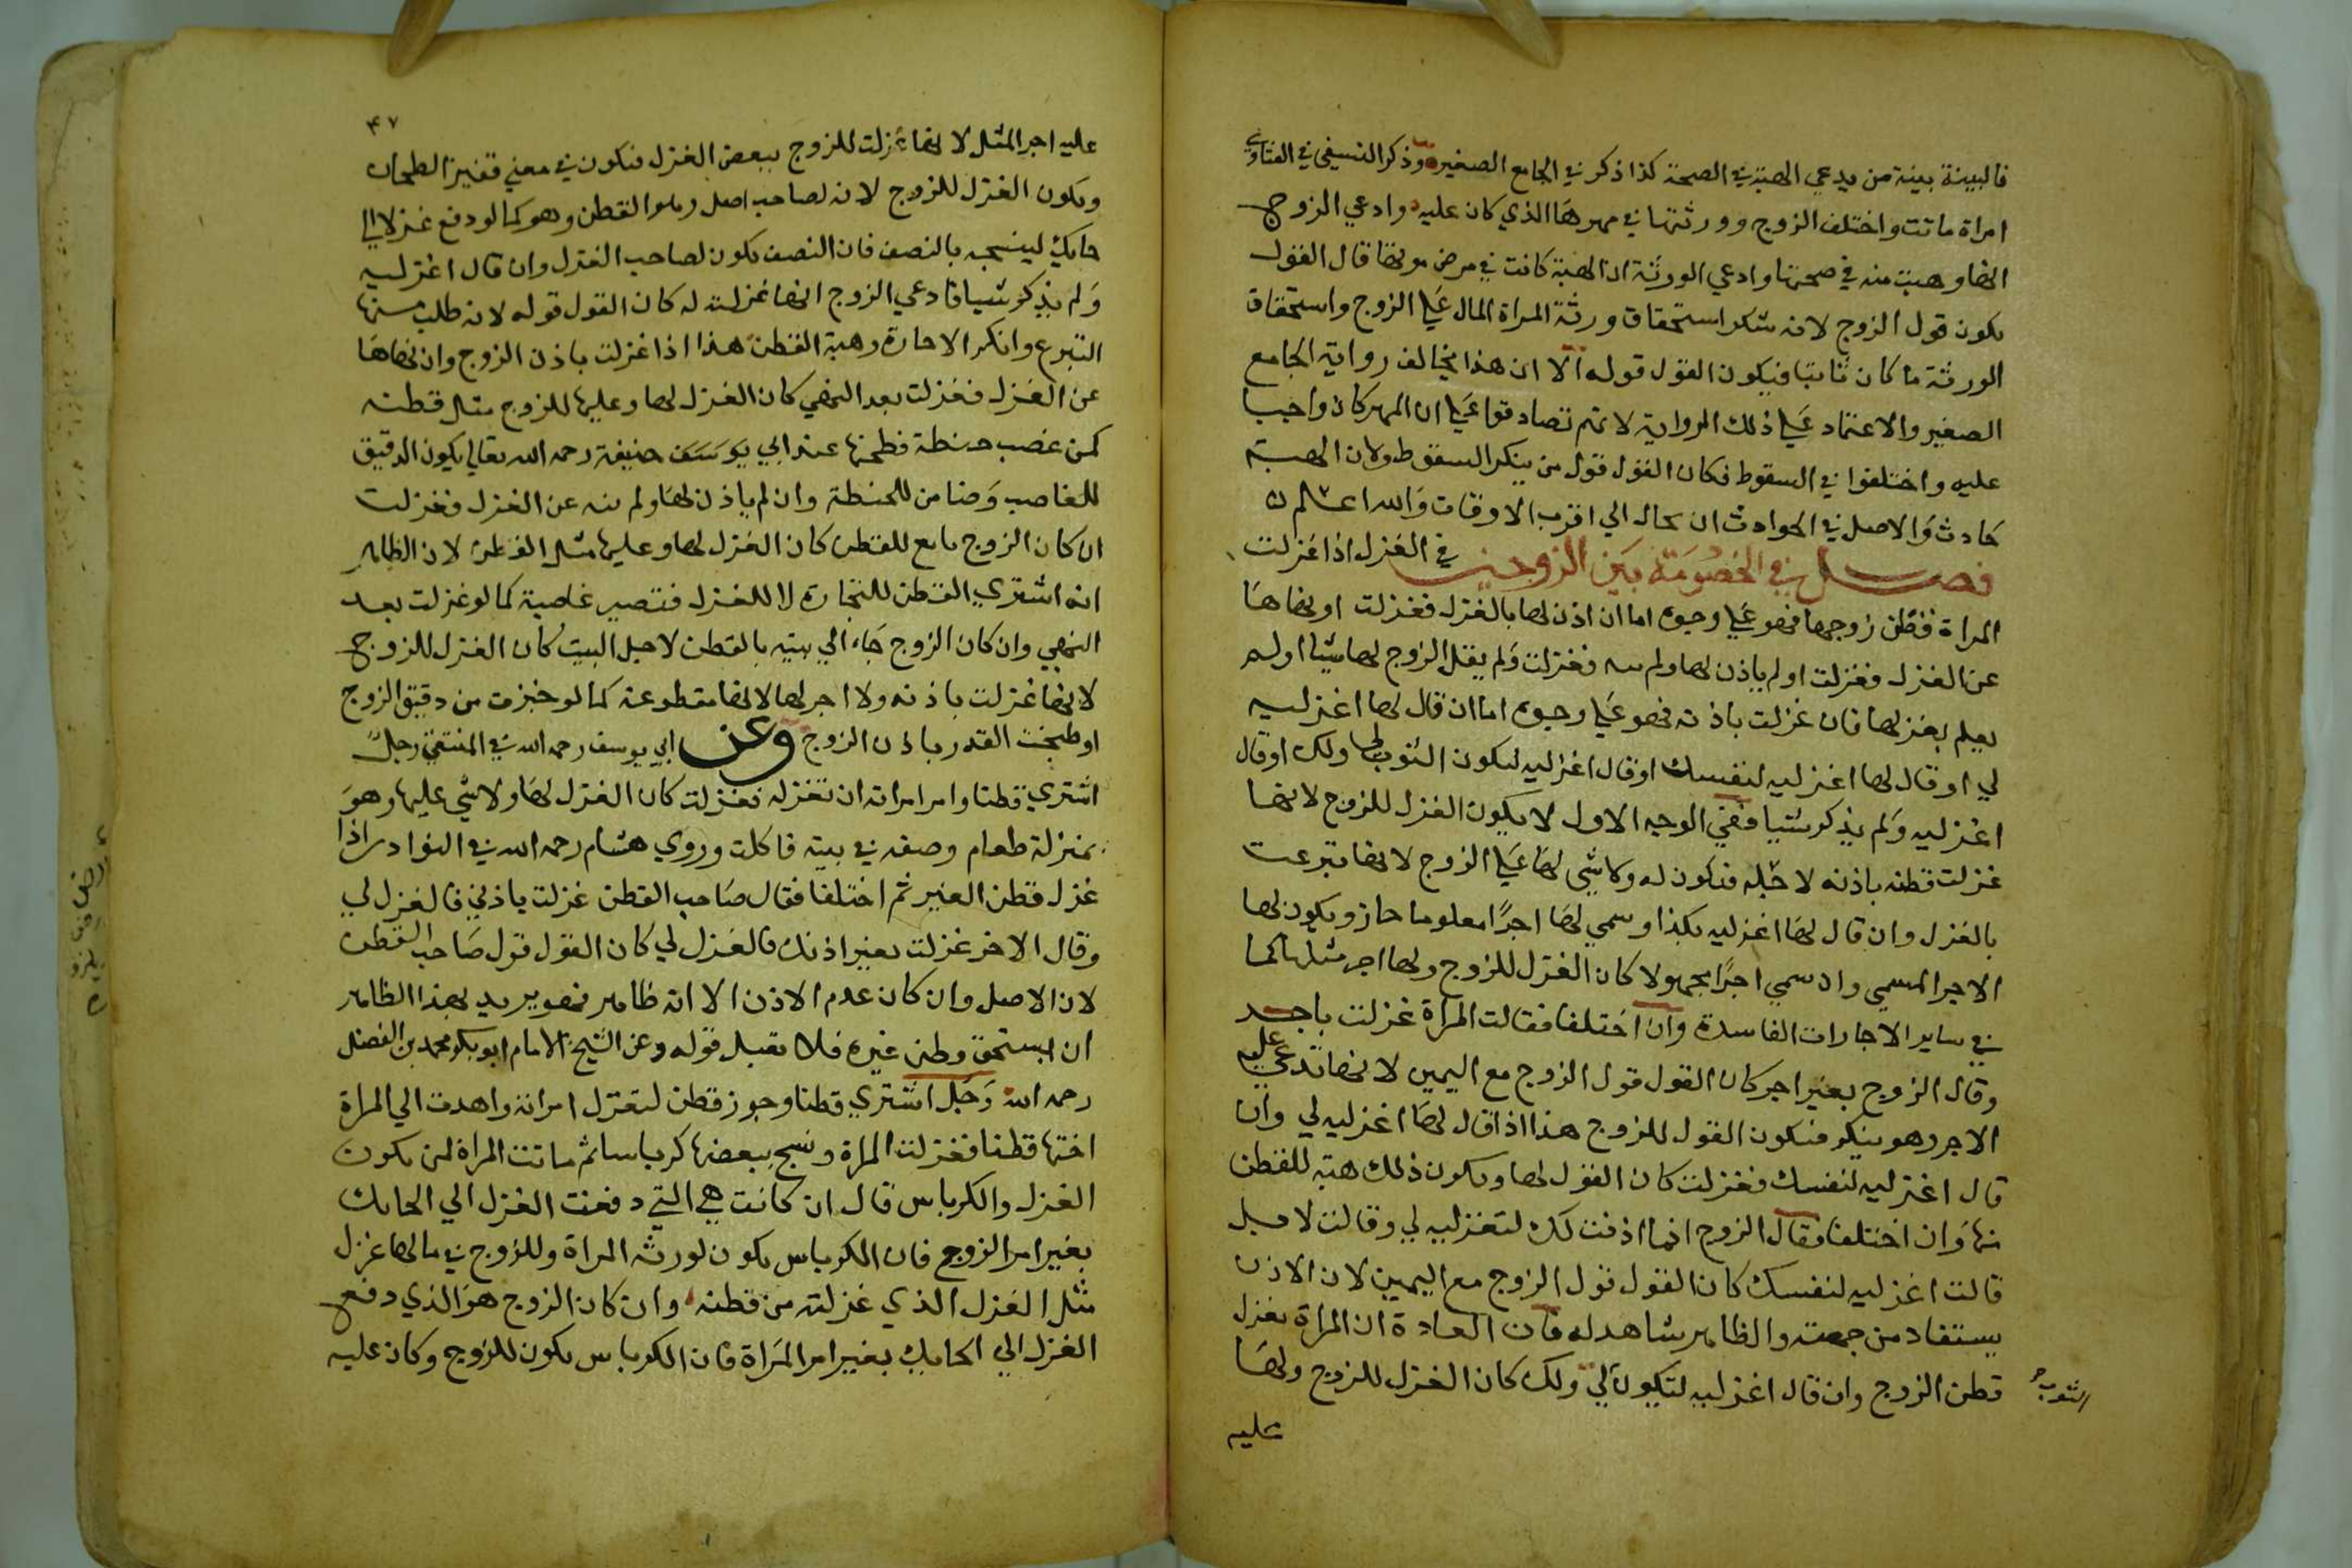 فالبينة بينة من يدعي الهبة في الصحة كذا ذكر في الجامع الصغير وذكر النسفي في الفتاوي
امراة ماتت واختلف الزوج وورثتها في مهرها الذي كان عليه وادعي الزوج
انها وهبت منه في صحتها وادعي الورثة ان الهبة كانت في مرض موتها قال القول
يكون قول الزوج لانه منكر استحقاق ورثة المراة المال علي الزوج واستحقاق
الورثة ما كان ثابتا فيكون القول قوله الا ان هذا يخالف رواية الجامع
الصغير والاعتماد علي ذلك الرواية لانهم تصادقوا علي ان المهر كان واجبا
عليه واختلفوا في السقوط فكان القول قول من ينكر السقوط ولان الهبة
حادث والاصل في الحوادث ان يحال الي اقرب الاوقات والله اعلم
فصل في الخصومة بين الزوجين في الغزل اذا غزلت
المراة قطن زوجها فهو علي وجوه اما ان اذن لها بالغزل فغزلت او نهاها
عن الغزل فغزلت او لم ياذن لها ولم ينه فغزلت ولم يقل الزوج لها شيا او لم
يعلم بغزلها فان غزلت باذنه فهو علي وجوه اما ان قال لها اغزليه
لي او قال لها اغزليه لنفسك او قال اغزليه ليكون الثوب لي ولك او قال
اغزليه ولم يذكر شيا ففي الوجه الاول لا يكون الغزل للزوج لانها
غزلت قطنه باذنه لاجله فيكون له ولا شي لها علي الزوج لانها تبرعت
بالغزل وان قال لها اغزليه بكذا وسمي لها اجرا معلوما جاز ويكون لها
الاجر المسمي وان سمي اجرا مجهولا كان الغزل للزوج ولها اجر مثلها كما
في ساير الاجارات الفاسدة وان اختلفا فقالت المراة غزلت باجر
وقال الزوج بغير اجر كان القول قول الزوج مع اليمين لانها تدعي عليه
الاجر وهو ينكر فيكون القول للزوج هذا اذا قال لها اغزليه لي وان
قال اغزليه لنفسك فغزلت كان الغزل لها ويكون ذلك هبة للقطن
منها وان اختلفا فقال الزوج انما اذنت لك لتغزليه لي وقالت لا بل
قالت اغزليه لنفسك كان القول قول الزوج مع اليمين لان الاذن
يستفاد من جهته والظاهر شاهد له فان العادة ان المراة تغزل
قطن الزوج وان قال اغزليه لتكون لي ولك كان الغزل للزوج ولها
الثوب
عليه
٤٧
عليه اجر المثل لانها غزلت للزوج ببعض الغزل فيكون في معني قفيز الطحان
ويكون الغزل للزوج لانه لصاحب اصل وهو القطن وهو كما لو دفع غزلا الي
حايك لينسجه بالنصف فان النصف يكون لصاحب الغزل وان قال اغزليه
ولم يذكر شيا فادعي الزوج انها غزلت له كان القول قوله لانه طلب منها
التبرع وانكر الاجارة وهبة القطن هذا اذا غزلت باذن الزوج وان نهاها
عن الغزل فغزلت بعد النهي كان الغزل لها وعليها للزوج مثل قطنه
كمن غصب حنطة فطحنها عند ابي حنيفة رحمه الله تعالي يكون الدقيق
للغاصب وضامن للحنطة وان لم ياذن لها ولم ينه عن الغزل فغزلت
ان كان الزوج بايع للقطن كان الغزل لها وعليها مثل القطن لان الظاهر
انه اشتري القطن للتجارة لا للغزل فتصير غاصبة كما لو غزلت بعد
النهي وان كان الزوج جاء الي بيته بالقطن لاجل البيت كان الغزل للزوج
لانها غزلت باذنه ولا اجر لها لانها متطوعة كما لو خبزت من دقيق الزوج
او طبخت القدر باذن الزوج وعن ابي يوسف رحمه الله في المنتقي رجل
اشتري قطنا وامر امراته ان تغزله فغزلت كان الغزل لها ولا شي عليها وهو
بمنزلة طعام وضعه في بيته فاكلت وروي هشام رحمه الله في النوادر اذا
غزل قطن الغير ثم اختلفا فقال صاحب القطن غزلت باذني فالغزل لي
وقال الاخر غزلت بغير اذنك فالغزل لي كان القول قول صاحب القطن
لان الاصل وان كان عدم الاذن الا انه ظاهر فهو يريد بهذا الظاهر
ان يستحق وطن غيره فلا يقبل قوله وعن الشيخ الامام ابو بكر محمد بن الفضل
رحمه الله رجل اشتري قطنا وجوز قطن لتغزل امراته واهدت الي المراة
اختها قطنا فغزلت المراة ونسج ببعضها كرباسا ثم ماتت المراة لمن يكون
الغزل والكرباس قال ان كانت هي التي دفعت الغزل الي الحايك
بغير امر الزوج فان الكرباس يكون لورثة المراة وللزوج في مالها غزل
مثل الغزل الذي غزلته من قطنه وان كان الزوج هو الذي دفع
الغزل الي الحايك بغير امر المراة فان الكرباس يكون للزوج وكان عليه